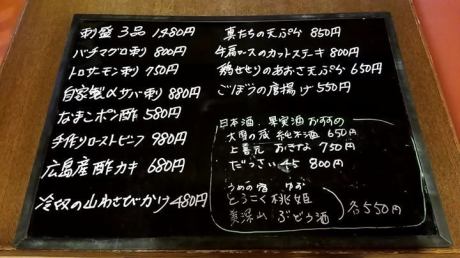 刺盛 3品 1480円
バチマグロ刺 800円
トロサーモン刺 750円
自家製〆サバ刺 880円
なまこポン酢 580円
手作りローストビーフ 980円
広島産酢カキ 680円
冷奴の山わさびかけ 480円
真たちの天ぷら 850円
牛肩ロースのカットステーキ 800円
鶏せせりのあおさ天ぷら 650円
ごぼうの唐揚げ 550円
日本酒、果実酒おすすめ
大関の蔵 純米酒 650円
上喜元 おきな 750円
だっさい 45 800円
うめの宿 ゆず
とろこく桃姫
奥深山 ぶどう酒
各550円